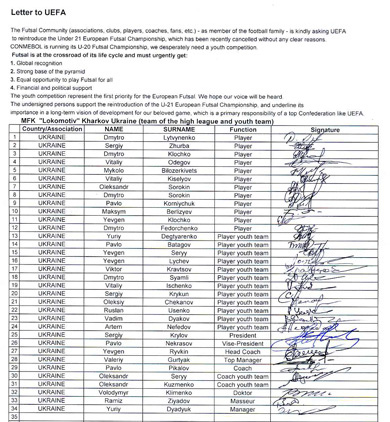 Letter to UEFA
The Futsal Community (associations, clubs, players, coaches, fans, etc.) - as member of the football family - is kindly asking UEFA
to reintroduce the Under 21 European Futsal Championship, which has been recently cancelled without any clear reasons.
CONMEBOL is running its U-20 Futsal Championship, we desperately need a youth competition.
Futsal is at the crossroad of its life cycle and must urgently get:
1. Global recognition
2. Strong base of the pyramid
3. Equal opportunity to play Futsal for all
4. Financial and political support
The youth competition represent the first priority for the European Futsal. We hope our voice will be heard.
The undersigned persons support the reintroduction of the U-21 European Futsal Championship, and underline its
importance in a long-term vision of development for our beloved game, which is a primary responsibility of a top Confederation like UEFA.
MFK "Lokomotiv" Kharkov Ukraine (team of the high league and youth team)
Country/Association NAME SURNAME Function Signature
1 UKRAINE Dmytro Lytvynenko Player
2 UKRAINE Sergiy Zhurba Player
3 UKRAINE Dmytro Klochko Player
4 UKRAINE Vitaliy Odegov Player
5 UKRAINE Mykolo Bilozerkivets Player
6 UKRAINE Vitaliy Kiselyov Player
7 UKRAINE Oleksandr Sorokin Player
8 UKRAINE Dmytro Sorokin Player
9 UKRAINE Pavlo Korniychuk Player
10 UKRAINE Maksym Berlizyev Player
11 UKRAINE Yevgen Klochko Player
12 UKRAINE Dmytro Fedorchenko Player
13 UKRAINE Yuriy Degtyarenko Player youth team
14 UKRAINE Pavlo Batagov Player youth team
15 UKRAINE Yevgen Seryy Player youth team
16 UKRAINE Yevgen Lychev Player youth team
17 UKRAINE Viktor Kravtsov Player youth team
18 UKRAINE Dmytro Syamli Player youth team
19 UKRAINE Vitaliy Ischenko Player youth team
20 UKRAINE Sergiy Krykun Player youth team
21 UKRAINE Oleksiy Chekanov Player youth team
22 UKRAINE Ruslan Usenko Player youth team
23 UKRAINE Vadim Dyakov Player youth team
24 UKRAINE Artem Nefedov Player youth team
25 UKRAINE Sergiy Krylov President
26 UKRAINE Pavlo Nekrasov Vise-President
27 UKRAINE Yevgen Ryvkin Head Coach
28 UKRAINE Valeriy Gurtyak Top Manager
29 UKRAINE Pavlo Pikalov Coach
30 UKRAINE Oleksandr Seryy Coach youth team
31 UKRAINE Oleksandr Kuzmenko Coach youth team
32 UKRAINE Volodymyr Klimenko Doktor
33 UKRAINE Ramiz Ziyadov Masseur
34 UKRAINE Yuriy Dyadyuk Manager
35